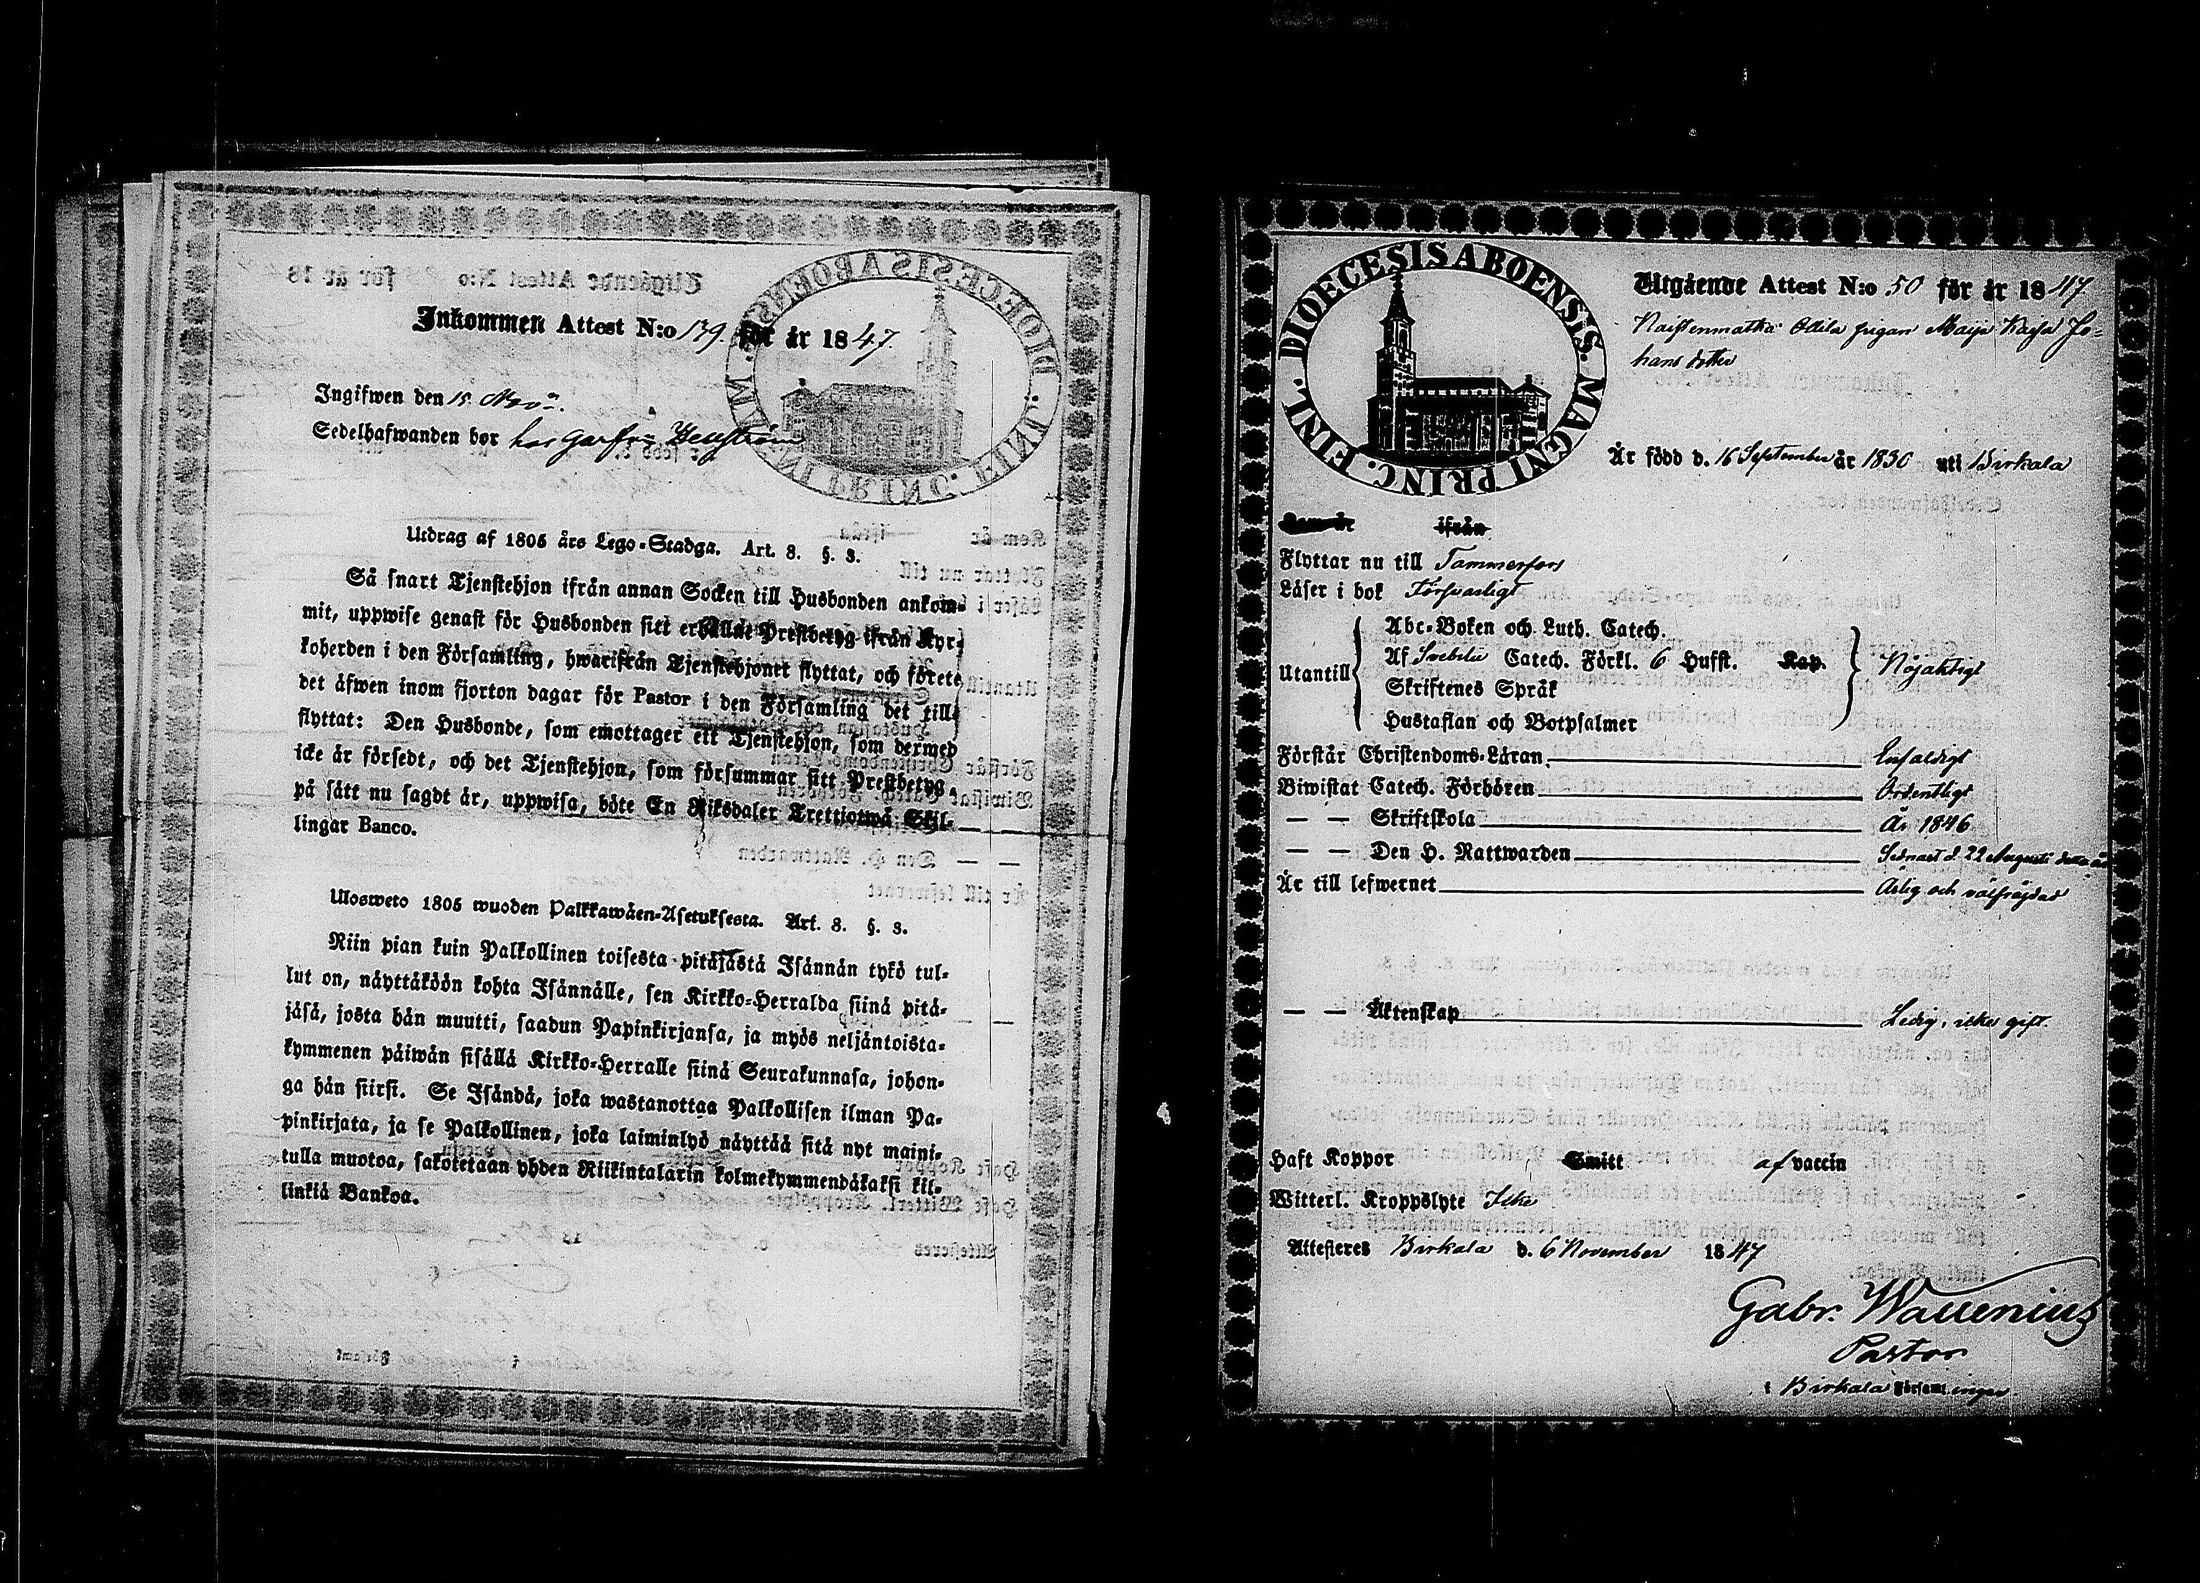 Inkommen Attest N:o 139. för år 1847.
Ingifwen den 15 Nov.
Sedelhafwanden bor hos
Utdrag af 1805 års Lego-Stadga. Art. 8. §. 3.
Så snart Tjenstehjon ifrån annan Socken till Husbonden ankom-
mit, uppwise genast för Husbonden sitt erhållne Prestbetyg ifrån Kyr-
koherden i den Församling, hwarifrån Tjenstehjonet flyttat, och förete
det äfwen inom fjorton dagar för Pastor i den Församling det till-
flyttat: Den Husbonde, som emottager ett Tjenstehjon, som dermed
icke är försedt, och det Tjenstehjon, som försummar sitt Prestbetyg,
på sätt nu sagdt är, uppwisa, böte En Riksdaler Trettiotwå Skil-
lingar Banco.
Ulosweto 1805 wuoden Palkkawäen-Asetuksesta. Art. 8. §. 3.
Niin pian kuin Palkollinen toisesta pitäjästä Isännän tykö tul-
lut on, näyttäköön kohta Isännälle, sen Kirkko-Herralda siinä pitä-
jäsä, josta hän muutti, saadun Papinkirjansa, ja myös neljäntoista-
kymmenen päiwän sisällä Kirkko-Herralle siinä Seurakunnasa, johon-
ga hän siirsi. Se Isändä, joka wastanottaa Palkollisen ilman Pa-
pinkirjata, ja se Palkollinen, joka laiminlyö näyttää sitä nyt maini-
tulla muotoa, sakotetaan yhden Riikintalarin kolmekymmendäkaksi kil-
linkiä Bankoa.
DIOECESIS ABOENSIS. MAGNI PRINC. FINL.
Utgående Attest N:o 50 för år 1847.
Naistenmatka Ollila pigan Maija Kaisa Jo-
hans dotter
Är född d. 16 September år 1830 uti Birkala
Kom år ifrån
Flyttar nu till Tammerfors
Läser i bok Försvarligt
Abc-Boken och Luth. Catech.
Af Svebilii Catech. Förkl. 6 Hufst. Kap.
Utantill Nöjaktigt
Skriftenes Språk
Hustaflan och Botpsalmer
Förstår Christendoms-Läran Enfaldigt
Biwistat Catech. Förhören Ordentligt
— — Skriftskola År 1846
— — Den H. Nattwarden Sednast d. 22 Augusti detta år
Är till lefwernet Ärlig och välfrägdad
— — Äktenskap Ledig, icke gift.
Haft Koppor Smitt af vaccin
Witterl. Kroppslyte Icke
Attesteres Birkala d. 6 November 1847
Gabr. Wallenius
Pastor
i Birkala Församlingar